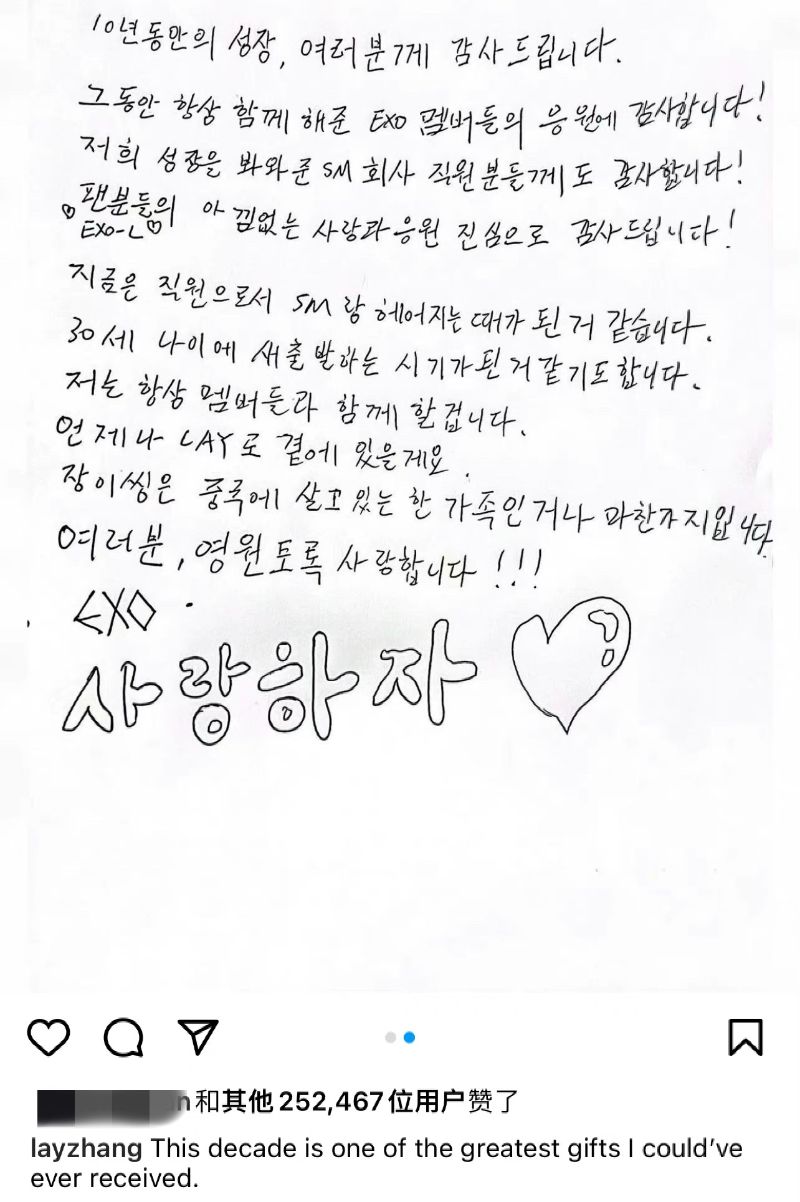 10년동안의 성장, 여러분께 감사드립니다.
그동안 항상 함께 해준 EXO 멤버들의 응원에 감사합니다!
저희 성장을 봐와준 SM 회사 직원분들께도 감사합니다!
♡팬분들의 아낌없는 사랑과 응원 진심으로 감사드립니다!
EXO-L♡
지금은 직원으로서 SM랑 헤어지는 때가 된거 같습니다.
30세 나이에 새출발하는 시기가 된거 같기도합니다.
저는 항상 멤버들과 함께 할겁니다.
언제나 LAY로 곁에 있을게요.
장이씽은 중국에 살고있는 한 가족인거나 마찬가지입니다
여러분, 영원토록 사랑합니다!!!
EXO.
사랑하자♡
n和其他 252,467 位用户赞了
layzhang This decade is one of the greatest gifts I could've
ever received.